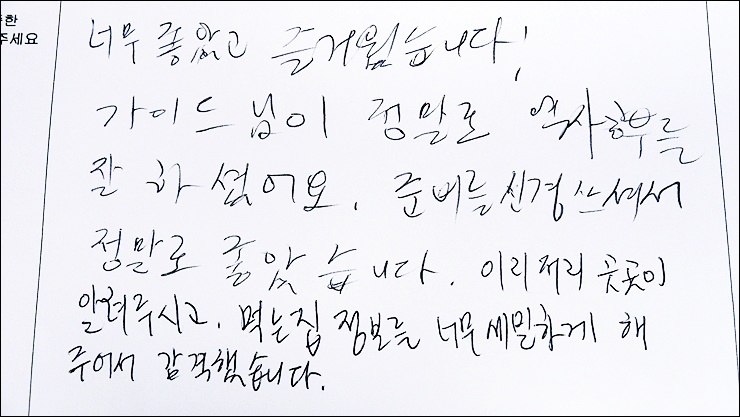 한
주세요
너무 좋았고 즐거웠습니다!
가이드님이 정말로 역사공부를
잘 하셨어요. 준비를 신경쓰셔서
정말로 좋았습니다. 이리저리 곳곳이
알려주시고. 먹는집 정보를 너무 세밀하게 해
주어서 감격했습니다.